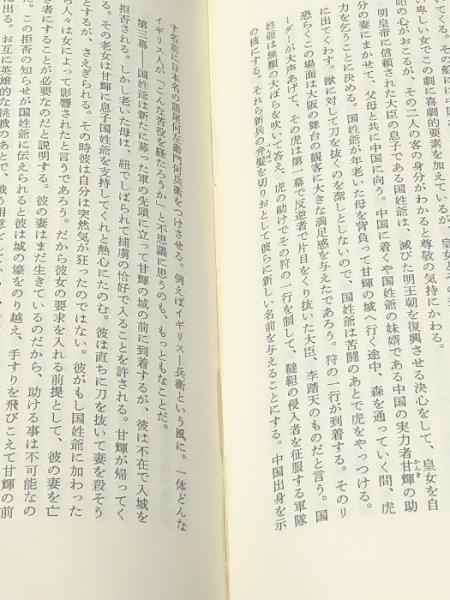 っている。その船に
の卑しい女でこの劇に喜劇的要素を加えているが、皇女と
始の心がおこるが、その二人の客の身分がわかると尊敬の気持にかわる。
明皇帝に信頼された大臣の息子である国姓爺は、滅びた明王朝を復興させる決心をして、皇女を自
分の妻にまかせて、父母と共に中国に向う。中国に着くや国姓爺の妹婿である中国の実力者甘輝の助
力を乞うことに決める。国姓爺が年老いた母を背負って甘輝の城へ行く途中、森を通っていく間、虎
に出てくわす。獣に対して刀を抜くのを潔しとしないので、国姓爺は苦闘のあとで虎をやっつける。
恐らくこの場面は大阪の舞台の観客に大きな満足感を与えたであろう。狩の一行が到着する。そのリ
ーダーが大声あげて、その虎は第一幕で反逆者で片目をくり抜いた大臣、李踏天のものだと言う。国
姓爺は無類の大ほらを吹いて答え、虎の助けでその狩の一行を制して、韃靼の侵入者を征服する軍隊
の核にする。それら新兵の弁髪を切りおとして彼らに新しい名前を与えることにする。中国出身を示
す名前に日本名の衛尾何左衛門何兵衛をつけさせる、例えばイギリス―兵衛という風に。一体どんな
イギリス人が「こんな苦役を耐えだろうか」と不思議に思うのも、もっともなことだ。
第三幕―国姓爺は新たに募った軍の先頭に立って甘輝の城の前に到着するが、彼は不在で入城を
拒否される。しかし老いた母は、紐でしばられて捕虜の恰好で入ることを許される。甘輝が帰ってく
る。その老女は甘輝に息子国姓爺を支持してくれと熱心にたのむ。彼は直ちに刀を抜いて妻を殺そう
とするが、さえぎられる。その時彼は自分は突然気が狂ったのではない。彼がもし国姓爺に加わった
ら人々は女によって影響されたと言うであろう。だから彼女の要求を入れる前提として、彼の妻を亡
き者にすることが必要なのだと説明する。彼の妻はまだ生きているのだから、助ける事は不可能なの
だ。この拒否の知らせが国姓爺に伝えられると彼は城の濠をのり越え、手すりを飛びこえて甘輝の前
に出る。お互に英雄的な挑戦のあとで、戦う用意を